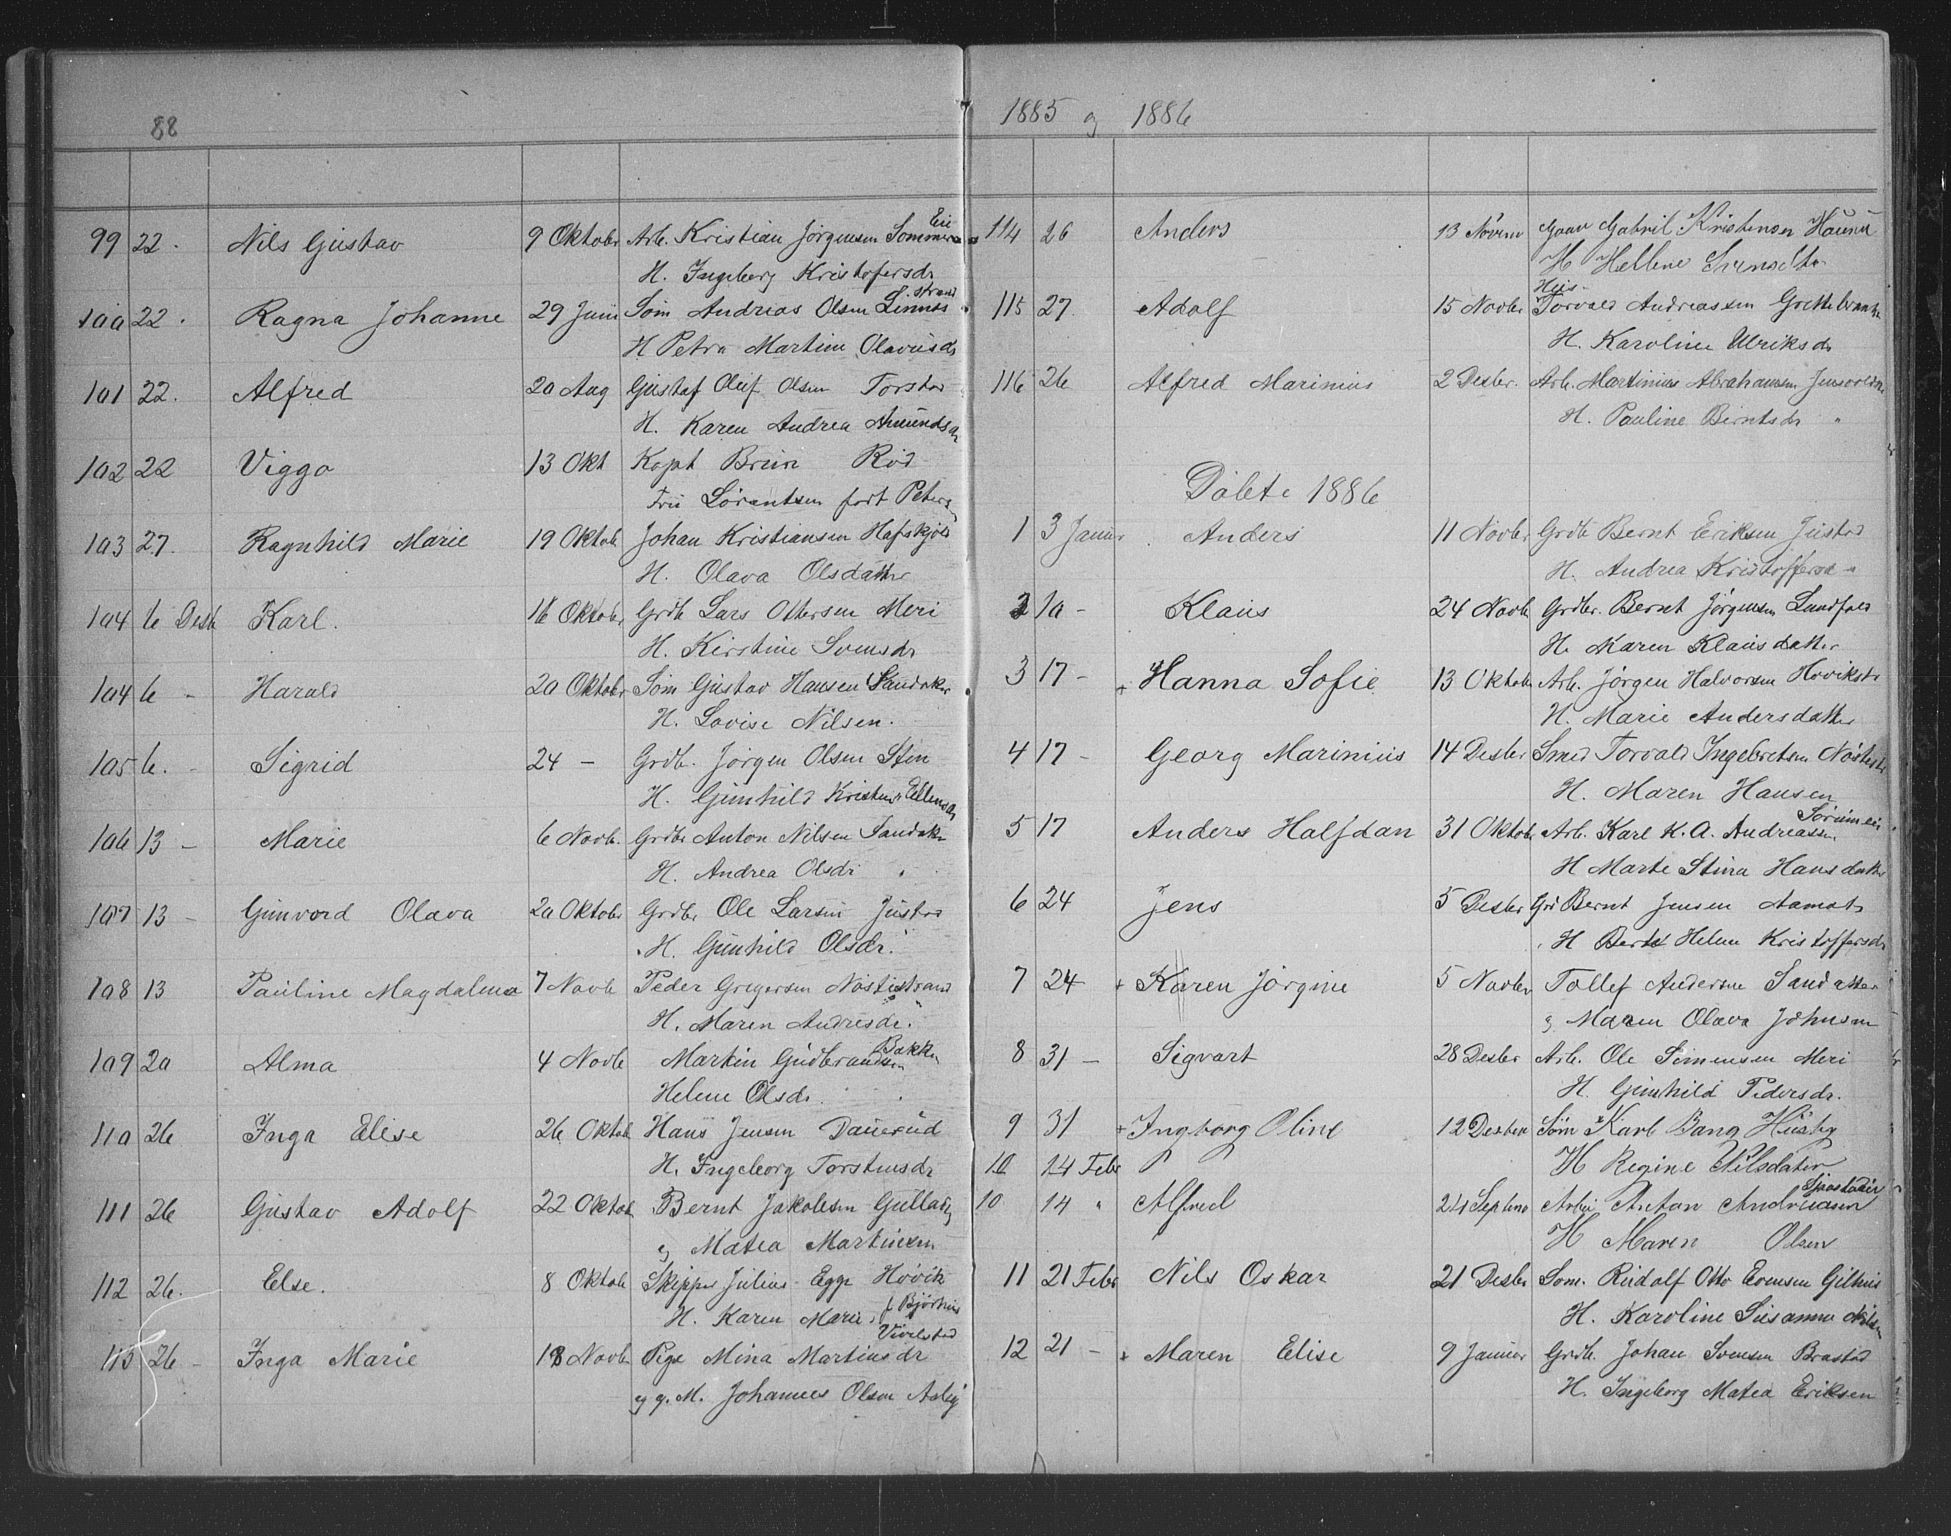 88
99 22. Nils Gustav 9 Oktober Arb. Kristian Jørgensen Sommer Eie
H. Ingeborg Kristofersdr
100 22. Ragna Johanne 29 Juni Søm Andreas Olsen Linnes strand
H Petra Martine Olavusdr
101 22. Alfred 20 Aug Gustaf Oluf Olsen Torstad
H. Karen Andrea Amundsdr
102 22 Viggo 13 Okt Kapt Bruun Rød
Fru Lorantsen født Peters
103 27. Ragnhild Marie 19 Oktob Johan Kristiansen Hafskjold
H. Olava Olsdatter
104 6 Desb Karl. 16 Oktober Grdb Lars Ottersen Meri
H. Kirstine Svensdr
104 6 - Harald 20 Oktober Søm Gustav Hansen Sandaker
H. Lovise Nilsen.
105 6. - Sigrid 24 - Grdb. Jørgen Olsen Sten
H. Gunhild Kristine Ellensdr
106 13 - Marie 6 Novb. Grdbr Anton Nilsen Sandaker
H. Andrea Olsdr "
107 13 - Gunvord Olava 20 Oktobr Grdbr Ole Larsen Justad
H. Gunhild Olsdr.
108 13 Pauline Magdalena 7 Novb Peder Gregersen Nøstestrand
H. Maren Andresdr.
109 20 Alma 4 Novb Martin Gudbrandsen Bakken
Helene Olsdr. "
110 26 Inga Elise 26 Oktob Hans Jensen Dauerud
H. Ingeborg Torstensdr
111 26 Gustav Adolf 22 Oktob Bernt Jakobsen Gullaug
og Matea Martinsen
112 26. Else. 8 Oktob Skipper Julius Egge Høvik
H. Karen Marie f Bjørnius
113 26 - Inga Marie 18 Novb Pige Mina Martinsdr Vivelstad
og g. M. Johannes Olsen Aaby
1885 og 1886
114 26 Anders 13 Novem Gaar Gabril Kristensen Haune
H Hellene Svensdtr
115 27. Adolf 15 Novbr Hus. Torvald Andreassen Grettebrauten
H. Karoline Ulriksdr
116 26 Alfred Marinius 2 Desbr. Arb. Martinius Abrahamsen Jensvolden
H. Pauline Berntsdr "
Døbte 1886
1 3 Januar Anders 11 Novbr Grdb Bernt Eriksen Justad
H. Andrea Kristoffersd "
2 10 - Klaus 24 Novb Grdbr. Bernt Jørgensen Lundfald
H. Karen Klausdatter
3 17 - + Hanna Sofie 13 Oktob Arb. Jørgen Halvorsen Hovikst
H. Marie Andersdatter
4 17 - Georg Marinius 14 Desbr Smed Torvald Ingebretsen Nøstestr
H. Maren Hansen
5 17 Anders Halfdan 31 Oktob Arb. Karl K. A. Andreassen Sørumeie
H Marte Stina Hansdatter
6 24 Jens 5 Desbr Grd Bernt Jensen Aamot
H Berte Helene Kristoffersdr
7 24 + Karen Jørgine 5 Novbr Tollef Andersen Sandaker
og Maren Olava Johnsen
8 31 - Sigvart 28 Desbr Arb. Ole Simensen Meri
H. Gunhild Pedersdr.
9 31 + Ingborg Oline 12 Desber Søm Karl Bang Husby
10 14 Febr H Regine Nilsdater
10 14 " Alfred 24 Septem Arbei Anton Andreasen Sjaastadeie
H Maren Olsen
11 21 Febr Nils Oskar 21 Desbr Søm. Rudolf Otto Evensen Gilhus
H. Karoline Susanne Nilsen
12 21 - + Maren Elise 9 Januar Grdb. Johan Svensen Brastad
H. Ingeborg Matea Eriksen